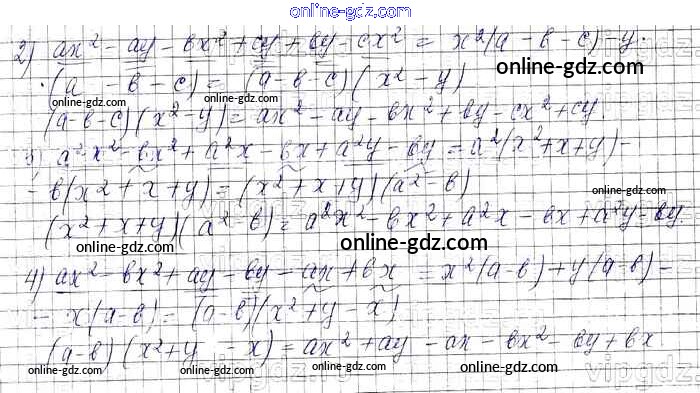 online-gdz.com
2) ax² - ay - вx² + cy + вy - cx² = x²(a - в - c) - y·
·(a - в - c) = (a - в - c)(x² - y)
online-gdz.com online-gdz.com online-gdz.com
(a-в-c)(x²-y) = ax² - ay - вx² + вy - cx² + cy
3) a²x² - вx² + a²x - вx + a²y - вy = a²(x²+x+y) -
- в(x² + x + y) = (x² + x + y)(a² - в)
online-gdz.com
(x² + x + y)(a² - в) = a²x² - вx² + a²x - вx + a²y - вy
online-gdz.com online-gdz.com online-gdz.com
4) ax² - вx² + ay - вy - ax + вx = x²(a-в) + y(a-в) -
- x(a-в) = (a-в)(x² + y - x)
(a-в)(x²+y - x) = ax² + ay - ax - вx² - вy + вx
online-gdz.com online-gdz.com online-gdz.com
vipgdz.ru